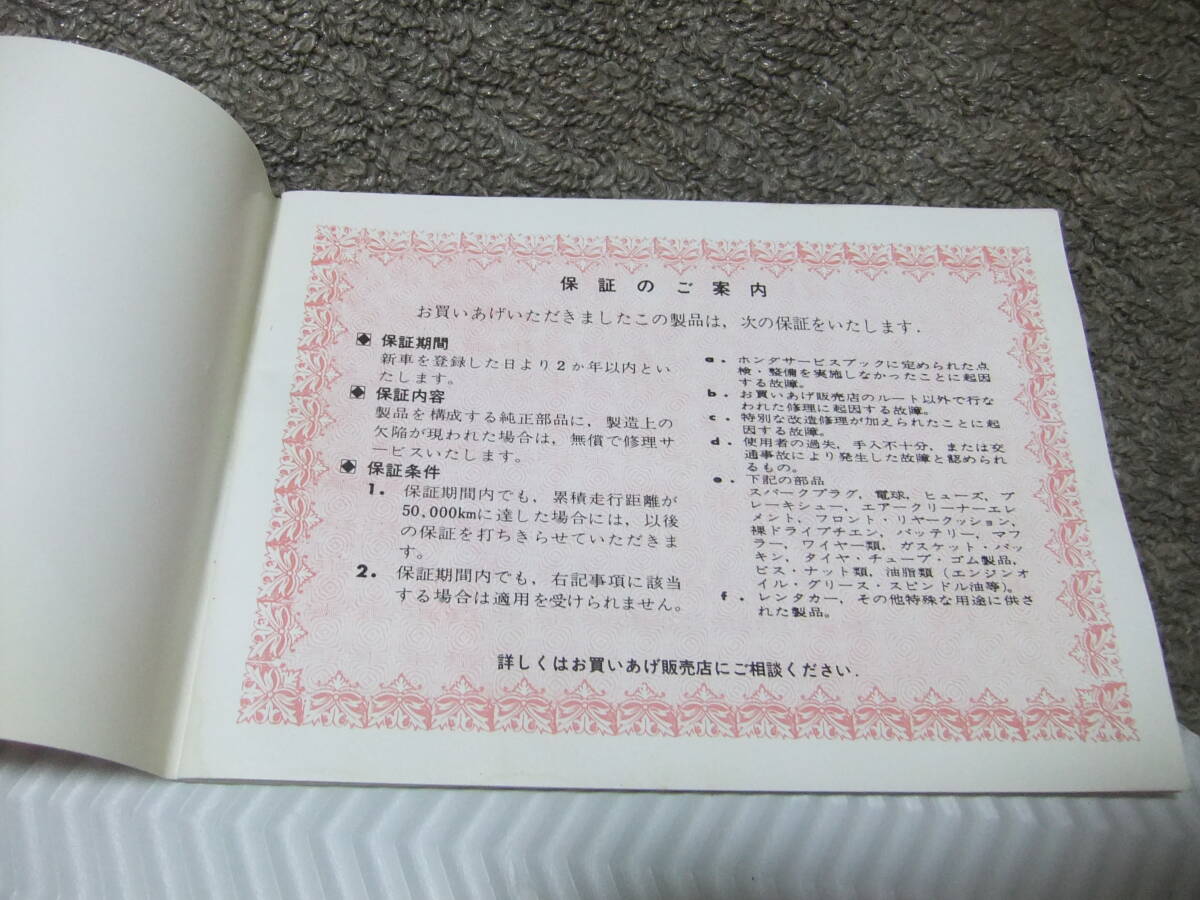 保証のご案内
お買いあげいただきましたこの製品は，次の保証をいたします．
保証期間
新車を登録した日より2か年以内とい
たします。
保証内容
製品を構成する純正部品に，製造上の
欠陥が現われた場合は，無償で修理サ
ービスいたします。
保証条件
1. 保証期間内でも，累積走行距離が
50,000kmに達した場合には，以後
の保証を打ちきらせていただきま
す。
2. 保証期間内でも，右記事項に該当
する場合は適用を受けられません。
a. ホンダサービスブックに定められた点
検・整備を実施しなかったことに起因
する故障。
b. お買いあげ販売店のルート以外で行な
われた修理に起因する故障。
c. 特別な改造修理が加えられたことに起
因する故障。
d. 使用者の過失，手入不十分，または交
通事故により発生した故障と認められ
るもの。
e. 下記の部品
スパークプラグ，電球，ヒューズ，ブ
レーキシュー，エアークリーナーエレ
メント，フロント・リヤークッション，
裸ドライブチエン，バッテリー，マフ
ラー，ワイヤー類，ガスケット・パッ
キン，タイヤ・チューブ・ゴム製品，
ビス・ナット類，油脂類（エンジンオ
イル・グリース・スピンドル油等）。
f. レンタカー，その他特殊な用途に供さ
れた製品。
詳しくはお買いあげ販売店にご相談ください．